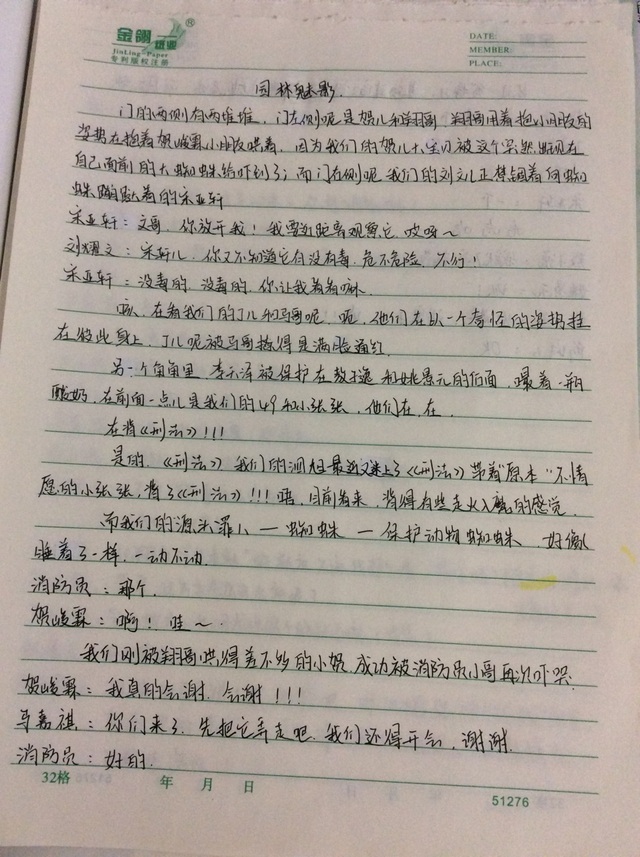 金翎纸业®
JinLing-Paper
专利版权注册
DATE:
MEMBER:
PLACE:
园林魅影.
门的两侧有两堆堆，门左侧呢是贺儿和翔哥，翔哥用着抱小朋友的
姿势在抱着贺峻霖小朋友哄着，因为我们的贺儿大宝贝被这个突然出现在
自己面前的大蜘蛛给吓到了；而门右侧呢，我们的刘文儿正禁锢着向蜘
蛛蹦跶着的宋亚轩
宋亚轩：文哥，你放开我！我要近距离观察它，哎呀～
刘耀文：宋轩儿，你又不知道它有没有毒，危不危险，不行！
宋亚轩：没毒的，没毒的，你让我看看嘛.
咳，在看我们的丁儿和马哥呢，呃，他们在以一个奇怪的姿势挂
在彼此身上，丁儿呢被马哥搂得是满脸通红
另一个角角里，李天泽被保护在敖子逸和姚景元的后面，嘬着一瓶
酸奶，在前面一点儿是我们的49和小张张，他们在，在.
在背《刑法》!!!
是的，《刑法》我们的泗旭最近又迷上了《刑法》带着"原本"不情
愿的小张张，背了《刑法》!!! 唔，目前看来，背得有些走火入魔的感觉.
而我们的源头罪人 — 蜘蛛 — 保护动物蜘蛛，好像
睡着了一样，一动不动.
消防员：那个.
贺峻霖：啊！哇～
我们刚被翔哥哄得差不多的小贺，成功被消防员小哥再次吓哭.
贺峻霖：我真的会谢，会谢!!!
马嘉祺：你们来了，先把它弄走吧，我们还得开会，谢谢.
消防员：好的.
32格
年 月 日
51276